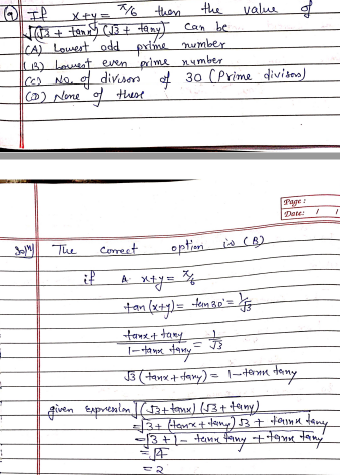 9) If x+y = π/6 then the value of
√(√3 + tanx) (√3 + tany) can be
(A) Lowest odd prime number
(B) Lowest even prime number
(C) No. of divisors of 30 (Prime divisors)
(D) None of these
Page :
Date: / /
Soln) The correct option is (B)
if A x+y = π/6
tan (x+y) = tan30° = 1/√3
tanx + tany / 1 - tanx tany = 1/√3
√3 (tanx + tany) = 1 - tanx tany
given expression √(√3 + tanx) (√3 + tany)
= √3 + (tanx + tany) √3 + tanx tany
= √3 + 1 - tanx tany + tanx tany
= √4
= 2